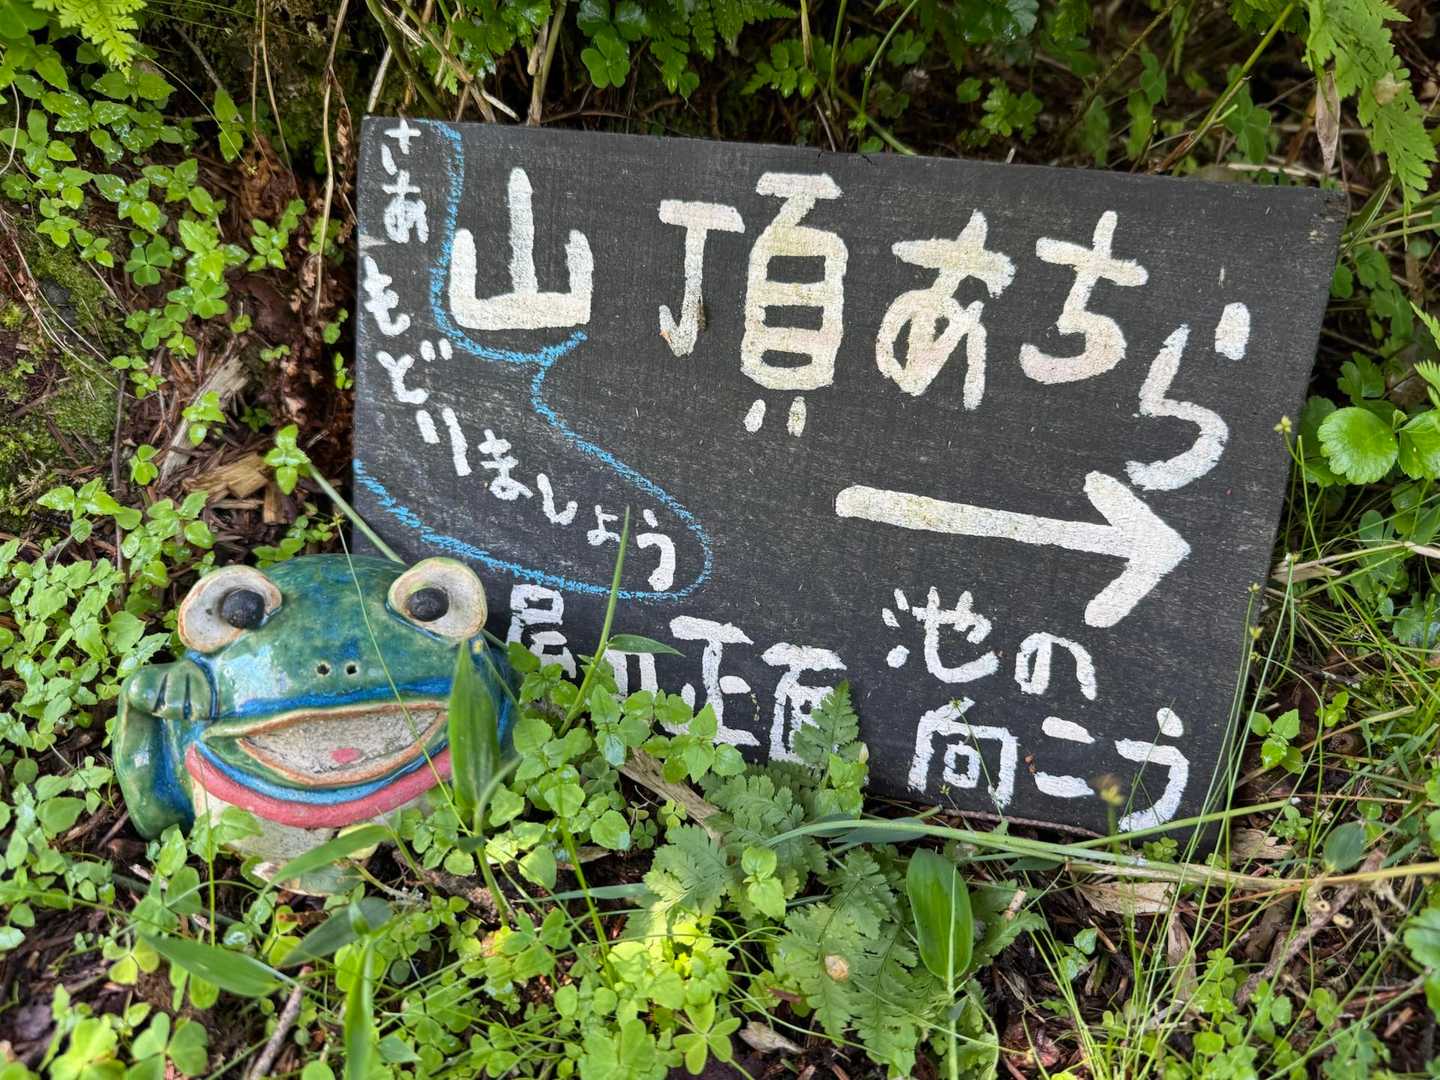 さあ もどりましょう
山頂あちら
→
正面 池の
向こう